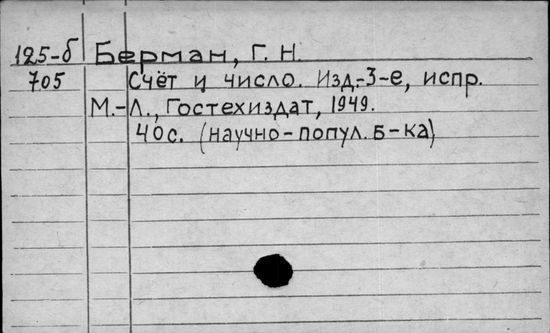 125-б Берман, Г. Н.
705 Счёт и число. Изд.-3-е, испр.
М.-Л., Гостехиздат, 1949.
40с. (научно-попул. Б-ка)